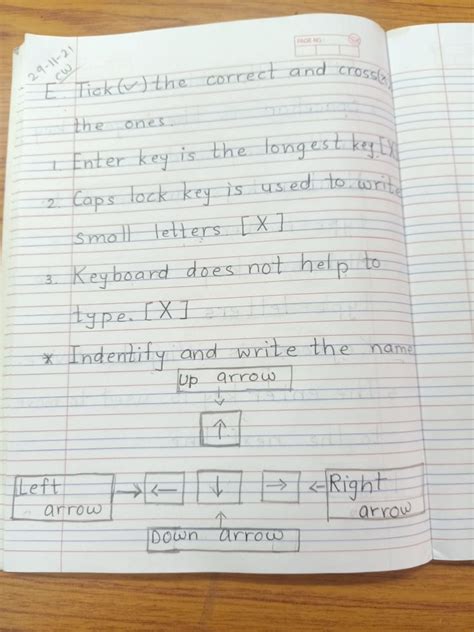 PAGE NO.:
29-11-21
CW
E Tick(✓) the correct and cross(x)
the ones.
1. Enter key is the longest key.[X]
2. Caps lock key is used to write
small letters. [X]
3. Keyboard does not help to
type. [X]
* Indentify and write the name
Up arrow
↓
↑
Left arrow → ← ↓ → ← Right arrow
↑
Down arrow